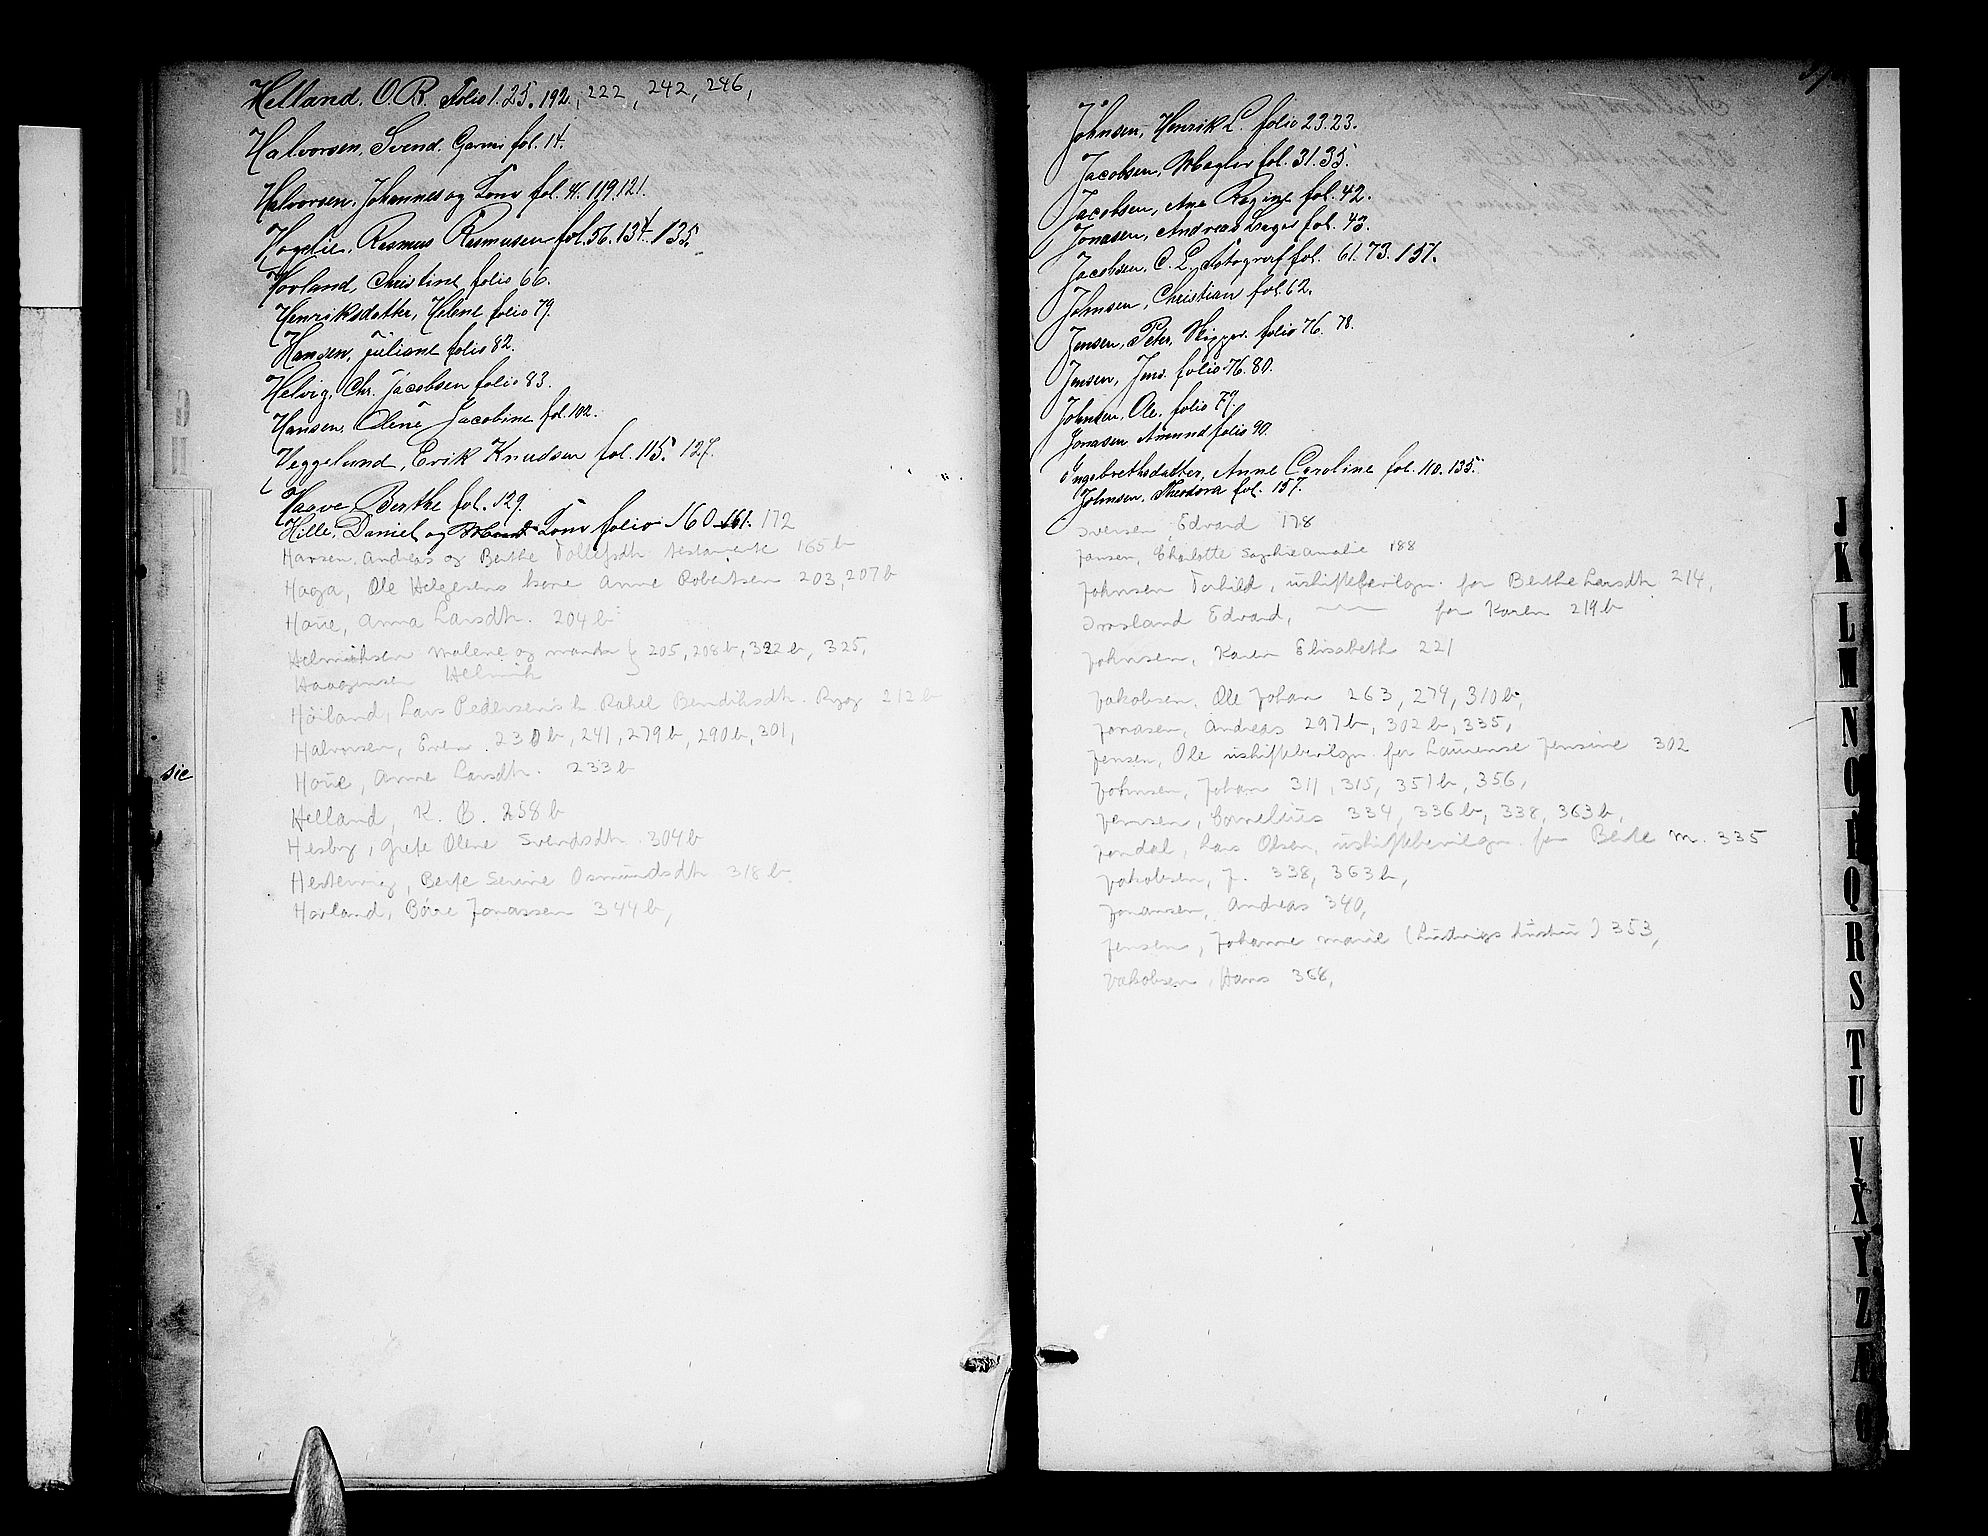 Helland, O. R. Folio 1. 25. 192, 222, 242, 246,
Halvorsen, Svend. Garmi fol. 14.
Halvorsen, Johannes og Kone fol. 119. 121.
Rasmus Rasmusen fol. 56. 134. 135.
Hovland, Christine folio 66.
Henriksdatter, Helene folio 79.
Hansen, Juliane folio 82.
Helvig, Chr. Jacobsen folio 83.
Hansen, Oline Jacobine fol. 102.
Heggelund, Erik Knudsen fol. 115. 127.
Haave, Berthe fol. 129.
Hille, Daniel og Kone folio 160. 161. 172
Hansen, Andreas og Berthe Tollefsdtr. testamente 165 b
Haga, Ole Helgesens kone Anne Robertsen 203, 207 b
Houe, Anna Larsdtr. 204 b
Helmichsen Malene og mand 205, 208 b, 322 b, 325,
Haagensen Helmik
Höiland, Lars Pedersens k. Rakel Bendiksdtr. Rygg 212 b
Halvorsen, Even. 230 b, 241, 279 b, 290 b, 301,
Houe, Anne Larsdtr. 233 b
sic
Helland, K. B. 258 b
Hesby, Grete Olene Svendsdtr. 304 b
Hertervig, Berte Serine Osmundsdtr. 318 b
Hovland, Böre Jonassen 344 b,
Johnsen, Henrik L. folio 23. 23.
Jacobsen, fol. 31. 35.
Jacobsen, Ane Regine fol. 42.
Jonasen, Andreas fol. 43.
Jacobsen, C. L. Fotograf fol. 61. 73. 157.
Johnsen, Christian fol. 62.
Jensen, Peter, Skipper. folio 76. 78.
Jensen, Jens. folio 76. 80.
Johnsen, Ole. folio 79.
Jonasen Amund folio 90.
Ingebrethsdatter, Anne Caroline fol. 110. 135.
Johnsen, Theodora fol. 157.
Iversen, Edvard 178
Jansen, Charlotte Sophie Amalie 188
Johnsen Torkild, uskiftebevilgn. for Berthe Larsdtr. 214,
Edvard, — for Karen 219 b
Johnsen, Karen Elisabeth 221
Jakobsen, Ole Johan 263, 279, 310 b,
Jonasen, Andreas 297 b, 302 b, 335,
Jensen, Ole uskiftebevilgn. for Laurense Jensine 302
Johnsen, Johan 311, 315, 351 b, 356,
Jensen, Cornelius 334, 336 b, 338, 363 b,
Jondal, Lars Olsen, uskiftebevilgn. for Berte M. 335
Jakobsen, J. 338, 363 b,
Jonansen, Andreas 340,
Jensen, Johanne Marie (Ludvigs hustru) 353,
Jakobsen, Hans 368,
J
K
L
M
N
O
P
Q
R
S
T
U
V
X
Y
Z
Æ
Ø